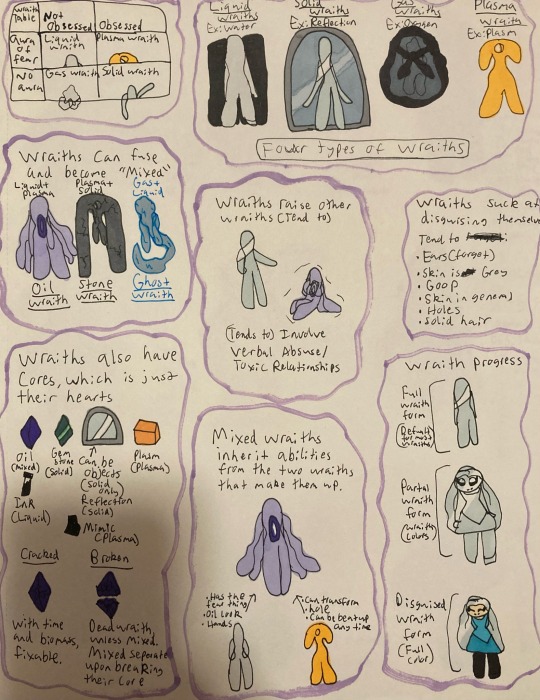 Wraith Table
Not Obsessed
Obsessed
Aura of fear
Liquid wraith
Plasma wraith
No aura
Gas wraith
Solid wraith
Liquid wraiths
Ex: Water
Solid wraiths
Ex: Reflection
Gas wraiths
Ex: Oxygen
Plasma wraith
Ex: Plasm
Four types of wraiths
Wraiths can fuse
and become "Mixed"
Liquid+
plasma
Plasma+
solid
Gas+
Liquid
Oil
wraith
Stone
wraith
Ghost
wraith
Wraiths raise other
wraiths (Tend to)
(Tends to) Involve
Verbal Abuse/
Toxic Relationships
Wraiths suck at
disguising themselve
Tend to :
• Ears (forget)
• Skin is Grey
• Goop
• Skin in general
• Holes
• Solid hair
Wraiths also have
Cores, which is just
their hearts
Oil
(Mixed)
Gem
stone
(Solid)
Can be
objects
(solid
only)
Reflection
(Solid)
Plasm
(Plasma)
Ink
(Liquid)
Mimic
(Plasma)
Cracked
With time
and biomass,
fixable.
Broken
Dead wraith,
unless mixed.
Mixed separate
upon breaking
their core
Mixed wraiths
inherit abilities
from the two wraiths
that make them up.
• Has the
few thing
• Oil look
• Hands
• Can transform
• hole
• Can be beat up
any time
Wraith progress
Full
wraith
form
(Default
for most
wraiths)
Partal
wraith
form
(wraith
colors)
Disguised
Wraith
form
(Full
color)